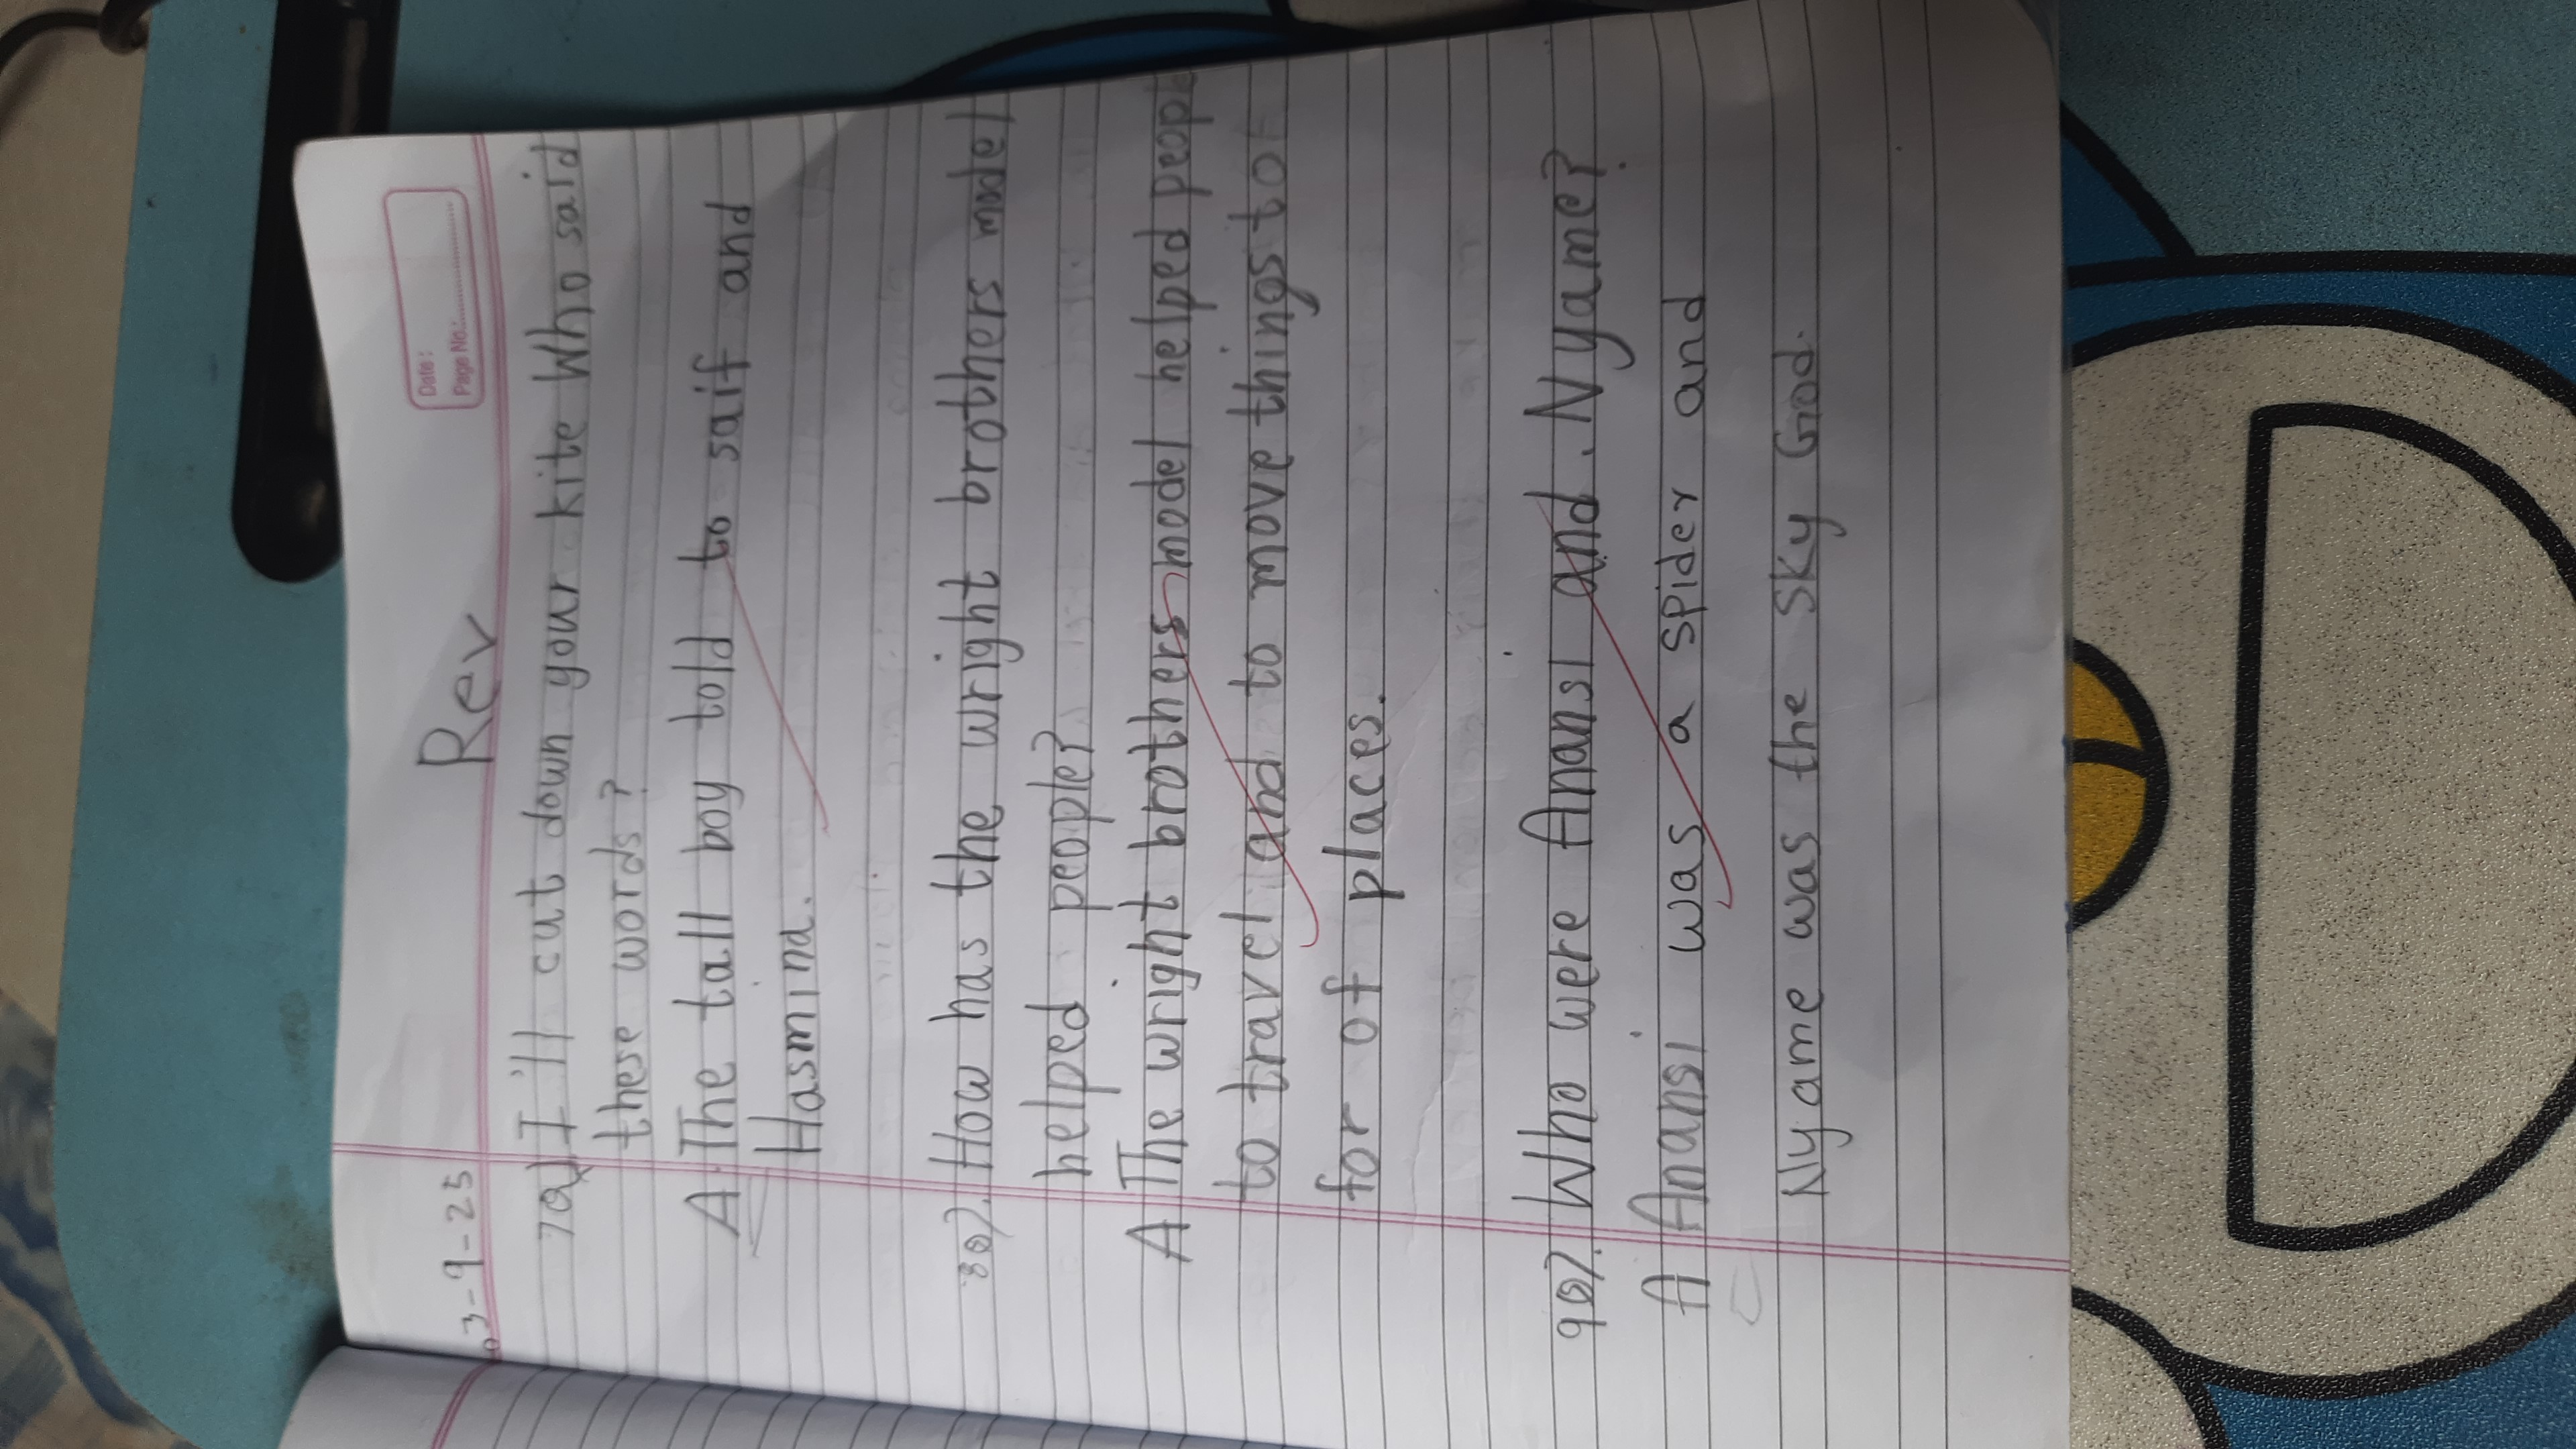 Date:
Page No.:
03-9-25 Rev
7Q) I'll cut down your kite Who said
these words?
A The tall boy told to saif and
Hasmina.
8Q). How has the wright brothers model
helped people?
A The wright brothers model helped people
to travel and to move things to
for of places.
9Q). Who were Anansi and. Nyame?
A Anansi was a spider and
Nyame was the Sky God.